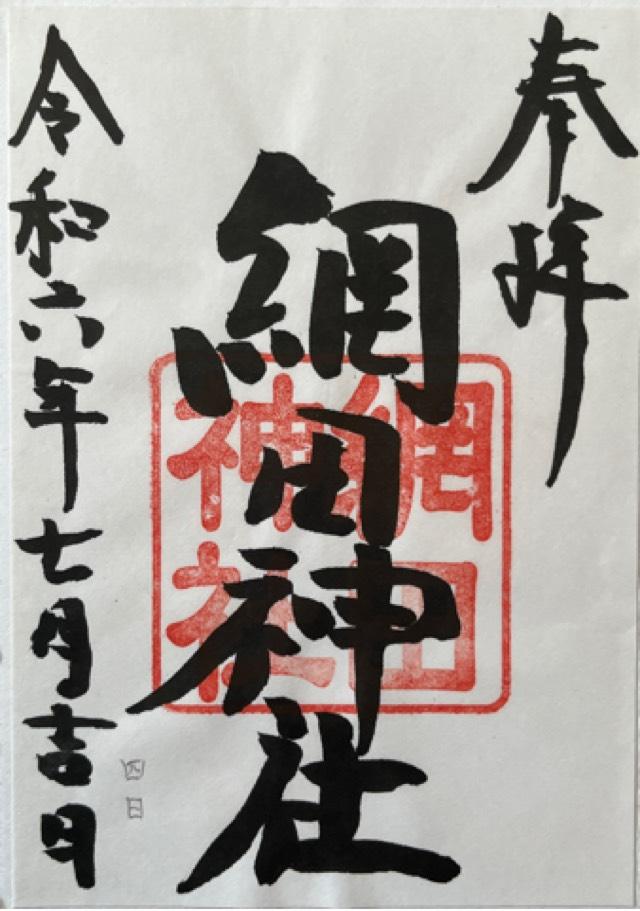 奉拝
網田神社
網田
神社
令和六年七月吉日
四日